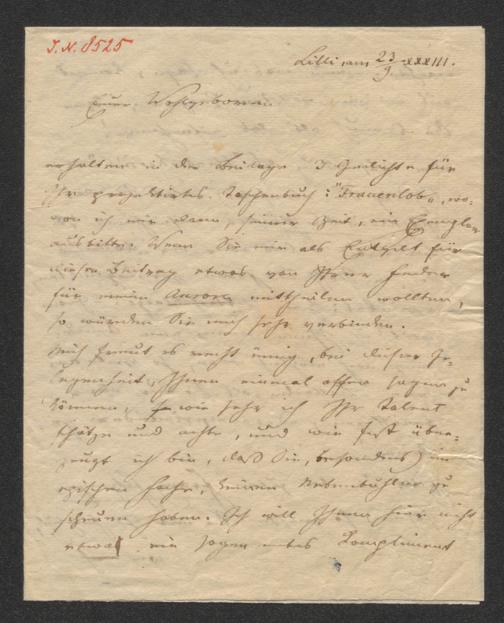 I.N. 8525
Lilli, am 23/9 XXXIII.
Euer Wohlgeboren
erhalten in der Beilage 3 Gedichte für
Ihr projektirtes Taschenbuch: "Frauenlob", wo-
von ich mir dann, seiner Zeit, ein Exemplar
ausbitte. Wenn Sie mir als Entgelt für
diesen Beitrag etwas von Ihrer Feder
für meine Aurora mittheilen wollten,
so würden Sie mich sehr verbinden.
Mich freut es recht innig, bei dieser Ge-
legenheit Ihnen einmal offen sagen zu
können, wie sehr ich Ihr Talent
schätze und achte, und wie fest über-
zeugt ich bin, daß Sie, besonders im
epischen Fache, keinen Nebenbuhler zu
scheuen haben. Ich will Ihnen hier nicht
etwa ein sogenanntes Kompliment